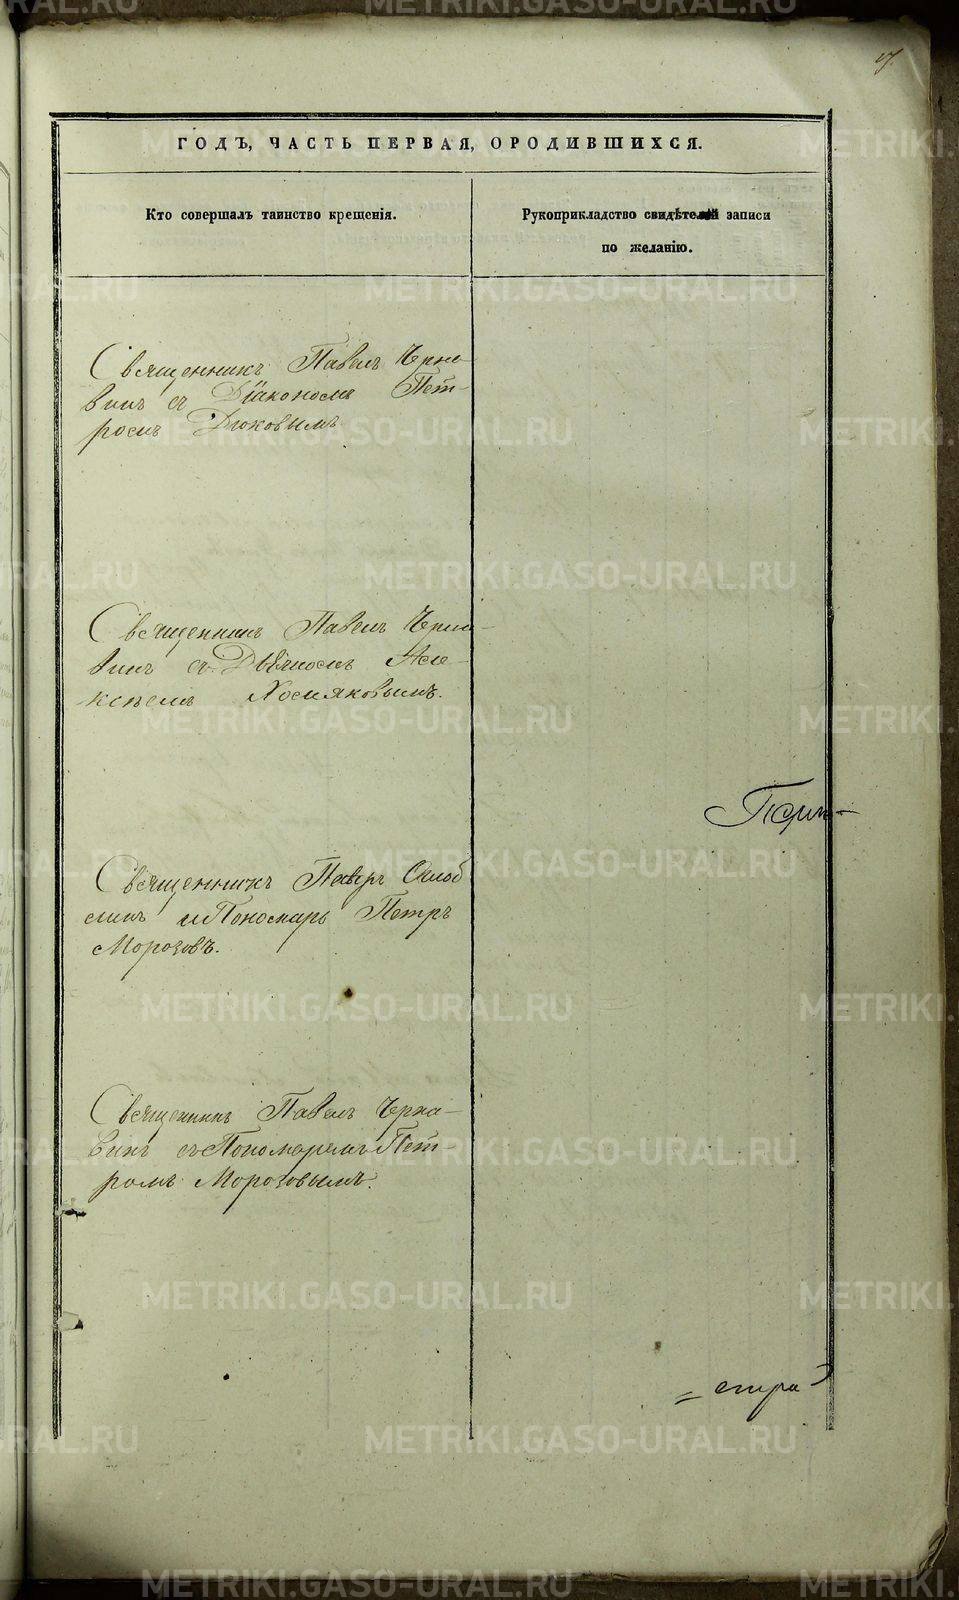 ГОДЪ, ЧАСТЬ ПЕРВАЯ, ОРОДИВШИХСЯ.
Кто совершалъ таинство крещенія.
Рукоприкладство свидѣтелей записи
по желанію.
Священникъ Павелъ Черна-
винъ съ Діакономъ Пет-
ромъ Дюковымъ
Священникъ Павелъ Черна-
винъ съ Дьячкомъ Але-
ксѣемъ Хомяковымъ.
Священникъ Оглоб
линъ и Пономарь Петръ
Морозовъ.
Священникъ Павелъ Черна-
винъ съ Пономаремъ Пет-
ромъ Морозовымъ.
METRIKI.GASO-URAL.RU